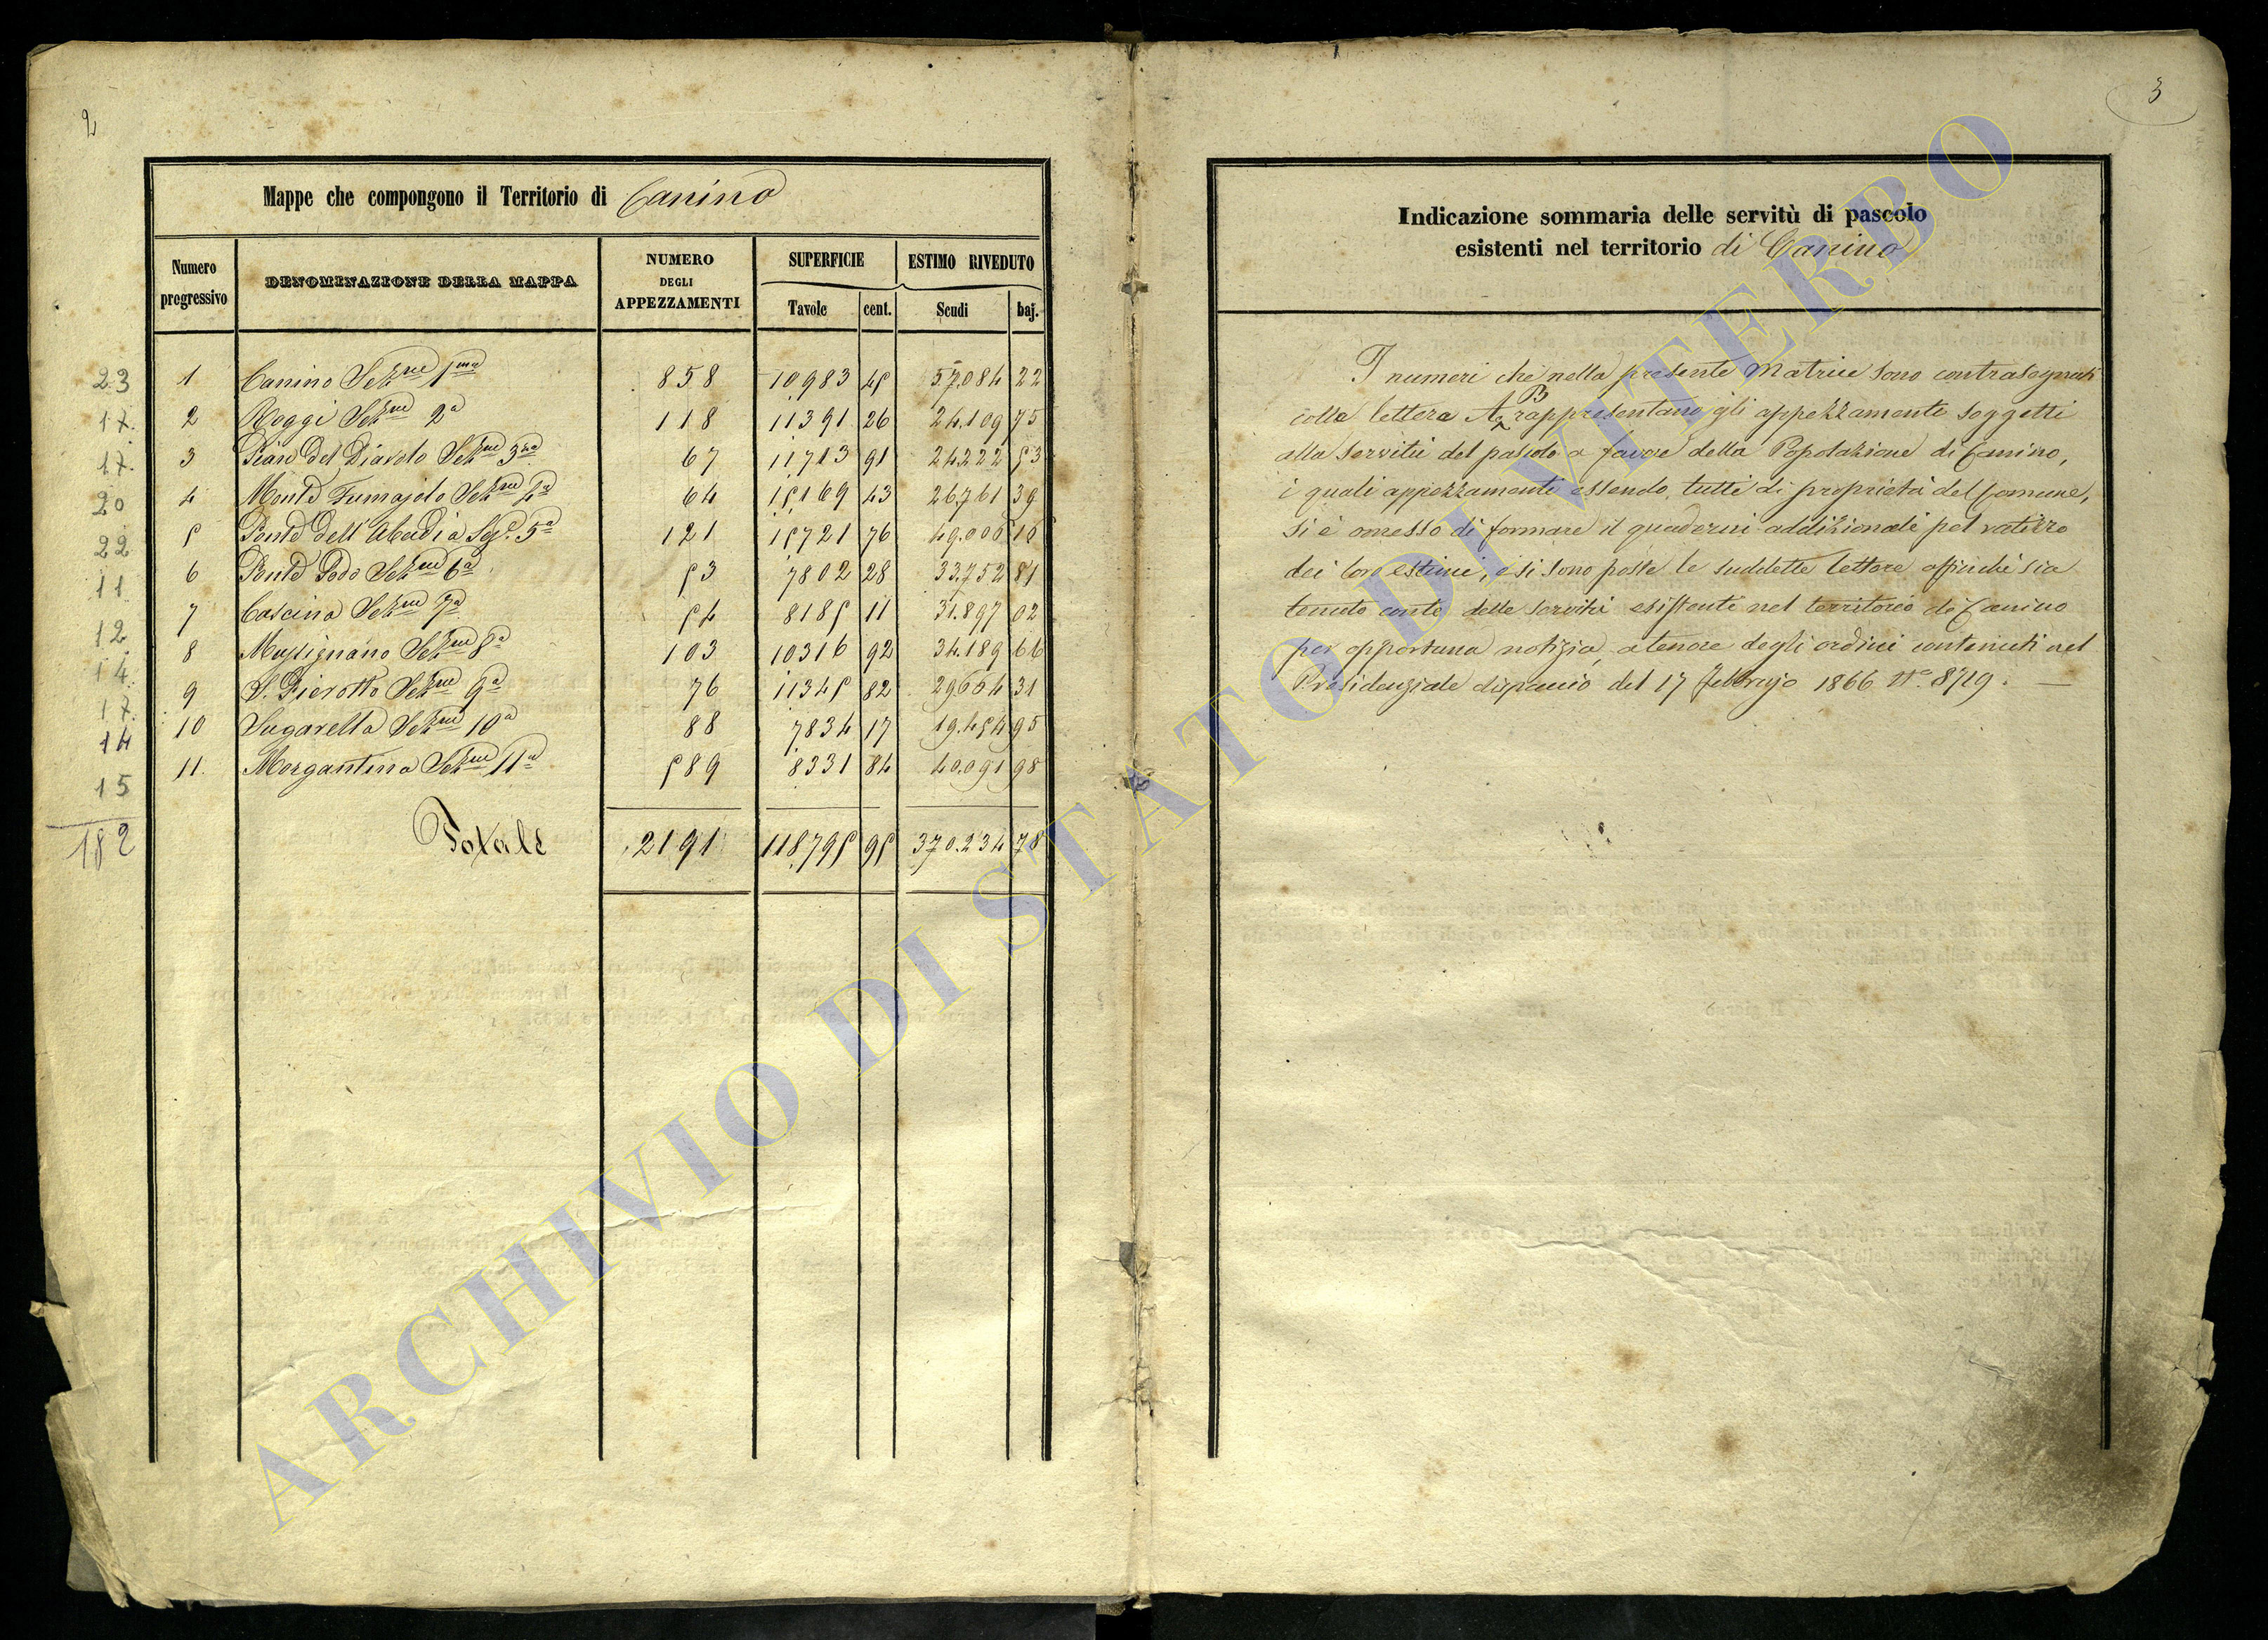 2
Mappe che compongono il Territorio di Canino
Numero progressivo DENOMINAZIONE DELLA MAPPA NUMERO DEGLI APPEZZAMENTI SUPERFICIE ESTIMO RIVEDUTO
Tavole cent. Scudi baj.
23 1 Canino Sez.ne 1ma 858 10983 45 57.084 22
17. 2 Roggi Sez.ne 2a 118 11391 26 24.109 75
17. 3 Pian del Diavolo Sez.ne 3za 67 11713 91 24.222 53
20 4 Monte Fumajolo Sez.ne 4a 64 15169 43 26.761 39
22 5 Ponte dell' Abadia Sez. 5a 121 15721 76 49.006 16
11 6 Ponte Sodo Sez.ne 6a 53 7802 28 33.752 81
12. 7 Cascina Sez.ne 7a 54 8185 11 31.897 02
14. 8 Musignano Sez.ne 8a 103 10316 92 34.189 66
17. 9 S. Pierotto Sez.ne 9a 76 11345 82 29664 31
14 10 Sugarella Sez.ne 10a 88 7834 17 19.454 95
15 11. Morgantina Sez.ne 11a 589 8331 84 40.091 98
182 Totale 2191 118795 95 370.234 78
3
Indicazione sommaria delle servitù di pascolo
esistenti nel territorio di Canino
I numeri che nella presente Matrice sono contrasegnati
colle lettere A, B rappresentano gli appezzamenti soggetti
alla servitù del pascolo a favore della Popolazione di Canino,
i quali appezzamenti essendo tutti di proprietà del Comune,
si è omesso di formare il quaderni addizionali pel
dei loro estimi, e si sono poste le suddette lettere affinchè sia
tenuto conto delle servitù esistenti nel territorio di Canino
per opportuna notizia, a tenore degli ordini contenuti nel
Presidenziale dispaccio del 17 Febbrajo 1866 N.o 8719.
ARCHIVIO DI STATO DI VITERBO